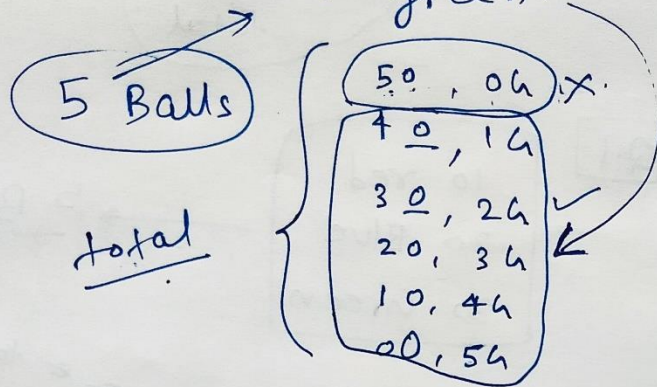 5 Balls
total
50, 0G X.
40, 1G
30, 2G ✓
20, 3G
10, 4G
00, 5G